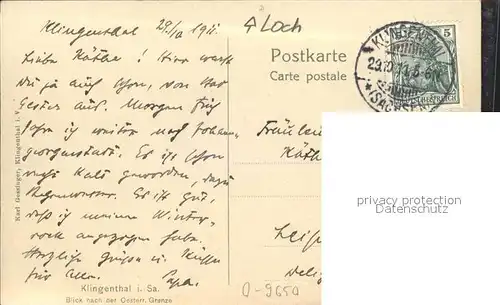 Klingenthal 29./10 1911.
4 Loch
Liebe Käthe! Hier
Du ja auch schon, von
aus. Morgen früh
ich weiter nach Johann-
georgenstadt. Es ist schon
kalt geworden, dazu
Regenwetter. Es ist gut,
daß ich meinen Winter-
rock angezogen habe.
Herzliche Grüße u. Küsse
für alle. Papa.
Postkarte
Carte postale
KLINGENTHAL
29.10.11. 5-6N.
(SACHSEN)
5
Fräulein
Käthe
Leipzig
Karl Gessinger, Klingenthal i. V.
Klingenthal i. Sa.
Blick nach der Oesterr. Grenze
D-9650
privacy protection
Datenschutz